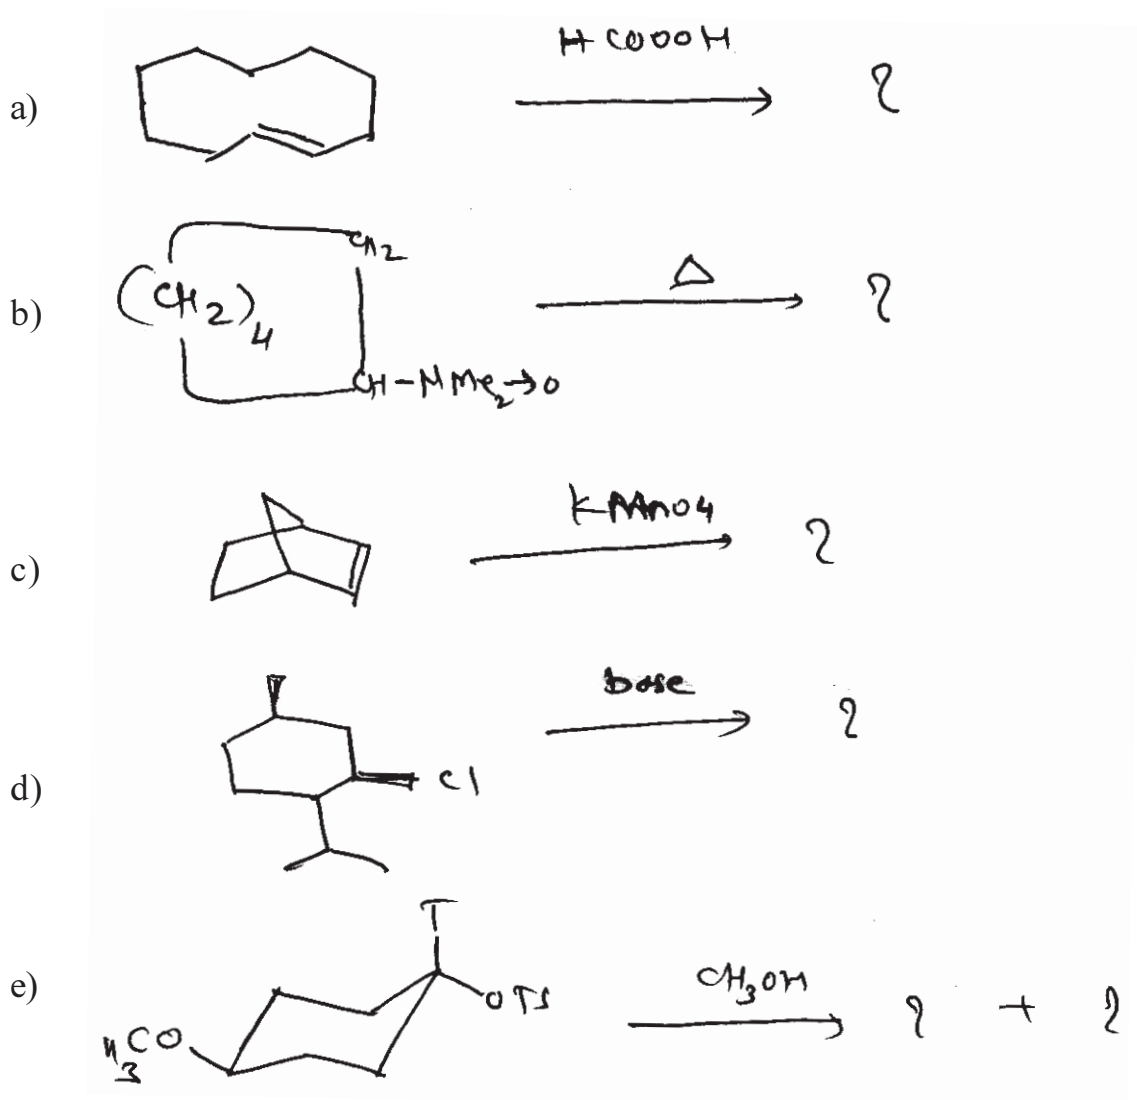 a) HCOOOH ?
b) (CH2)4 CH2 CH-NMe2→O Δ ?
c) KMnO4 ?
d) Cl base ?
e) H3CO T OTS CH3OH ? + ?